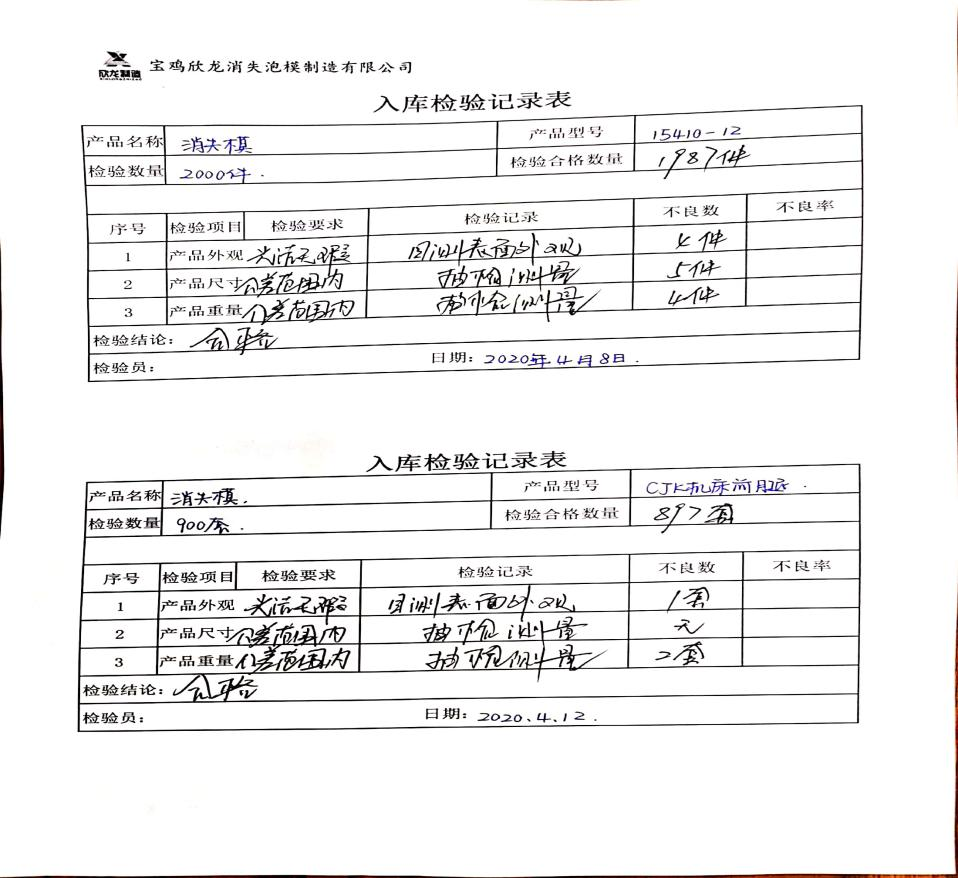 欣龙制造 宝鸡欣龙消失泡模制造有限公司
入库检验记录表
产品名称 消失模 产品型号 15410-12
检验数量 2000件. 检验合格数量 1987件
序号 检验项目 检验要求 检验记录 不良数 不良率
1 产品外观 光洁无瑕 目测表面外观 4件
2 产品尺寸 公差范围内 抽检测量 5件
3 产品重量 公差范围内 抽检测量 4件
检验结论: 合格
检验员: 日期: 2020年4月8日.
入库检验记录表
产品名称 消失模. 产品型号 CJK机床前月底.
检验数量 900套. 检验合格数量 897套
序号 检验项目 检验要求 检验记录 不良数 不良率
1 产品外观 光洁无瑕 目测表面外观 1套
2 产品尺寸 公差范围内 抽检测量 无
3 产品重量 公差范围内 抽检测量 2套
检验结论: 合格
检验员: 日期: 2020.4.12.